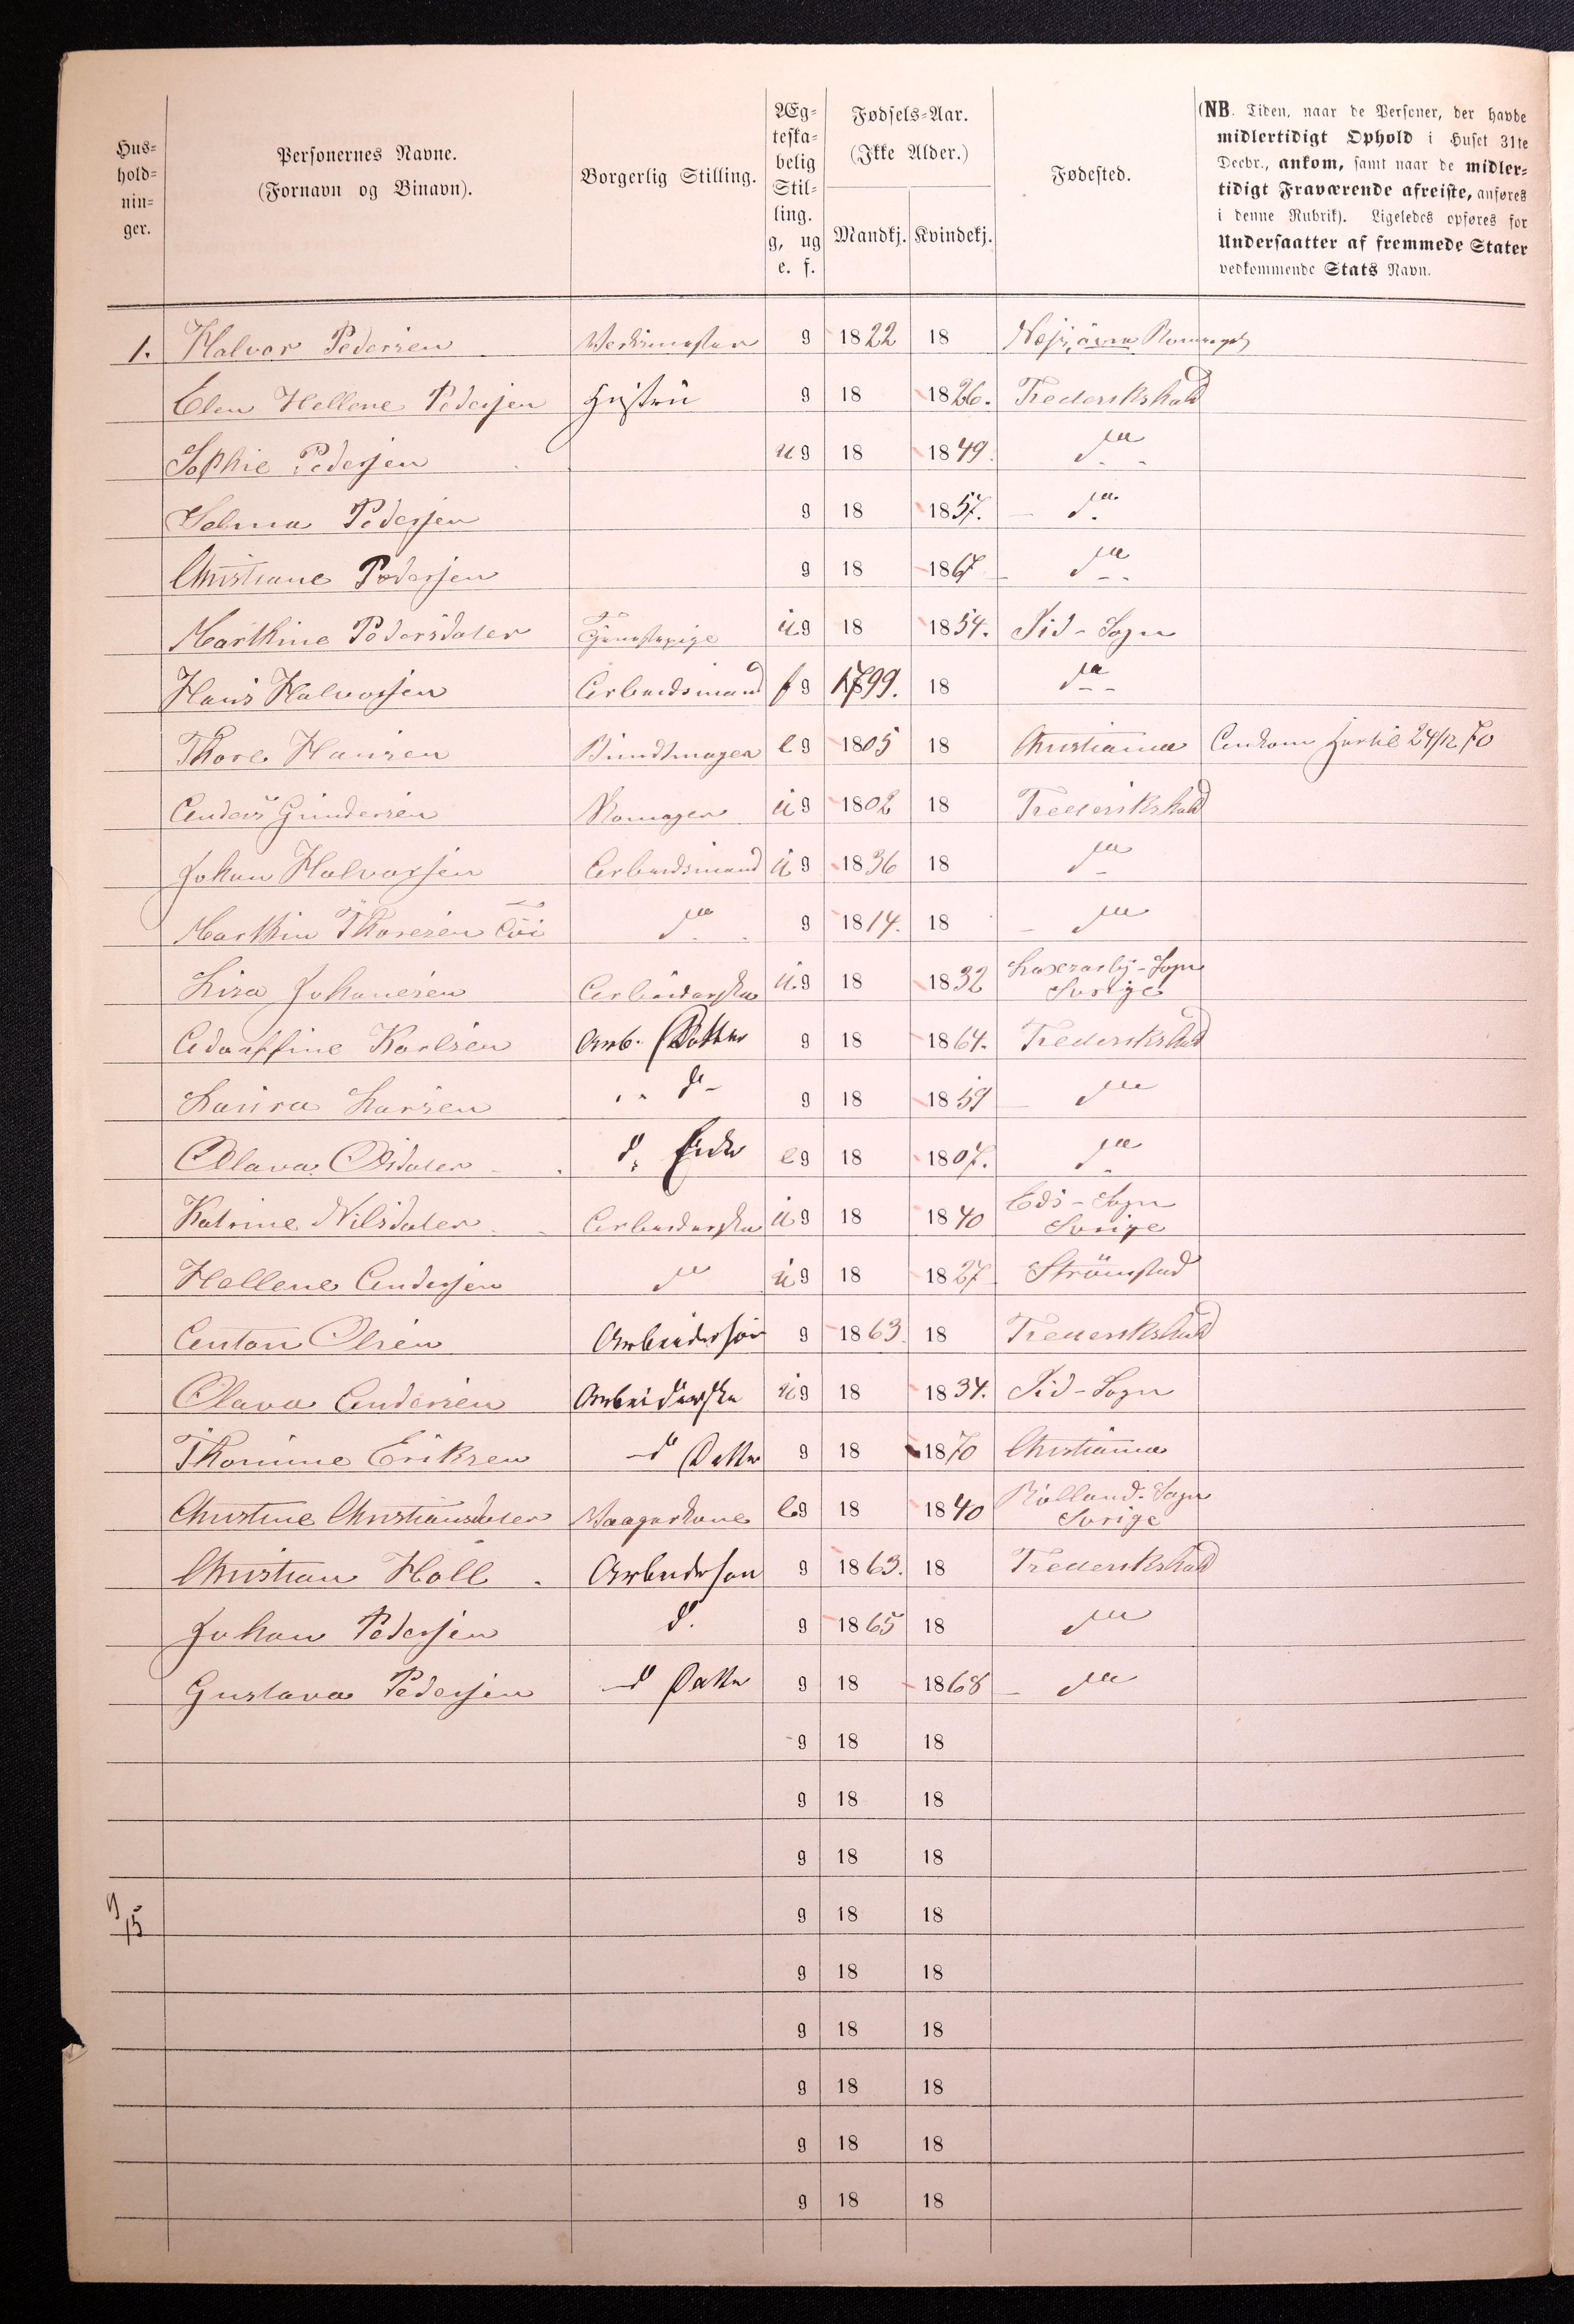 Hus=
hold=
nin=
ger.
Personernes Navne.
(Fornavn og Binavn).
Borgerlig Stilling.
Æg=
teska=
belig
Stil=
ling.
g, ug
e. f.
Fødsels=Aar.
(Ikke Alder.)
Mandkj. Kvindekj.
Fødested.
(NB. Tiden, naar de Personer, der havde
midlertidigt Ophold i Huset 31te
Decbr., ankom, samt naar de midler=
tidigt Fraværende afreiste, anføres
i denne Rubrik). Ligeledes opføres for
Undersaatter af fremmede Stater
vedkommende Stats Navn.
1. Halvor Pedersen g 1822 18
Elen Hellene Pedersen Hustru g 18 1826. Frederikshald
Sophie Pedersen ug 18 1849. do
Selma Pedersen g 18 1857. do
Christiane Pedersen g 18 1867 do
Marthine Pedersdater Tjenestepige ug 18 1854. Id-Sogn
Hans Halvorsen Arbeidsmand fg 1799. 18 do
Thore Hansen Bundtmager eg 1805 18 Christiania Ankom hertil 24/12 70
Anders Gundersen Skomager ug 1802 18 Frederikshald
Johan Halvorsen Arbeidsmand ug 1836 18 do
Marthin Thoresen do g 1814. 18 do
Lisa Johanesen Arbeiderske ug 18 1832 Sogn
Sverige
Karlsen Arb. Datter g 18 1864. Frederikshald
Laura Larsen do g 18 1859 do
Olava Olsdater do Enke eg 18 1807. do
Katrine Nilsdater Arbeiderske ug 18 1840 Eds-Sogn
Sverige
Hellene Andersen do ug 18 1827 Strömstad
Anton Olsen Arbeidersøn g 1863. 18 Frederikshald
Olava Andersen Arbeiderske ug 18 1834. Id-Sogn
Thomine Eriksen do Datter g 18 1870 Christiania
Christine Christiansdater eg 18 1840 Sogn
Sverige
Christian Holl Arbeidersøn g 1863. 18 Frederikshald
Johan Pedersen do. g 1865 18 do
Gustava Pedersen do Datter g 18 1868 do
g 18 18
g 18 18
g 18 18
9/15 g 18 18
g 18 18
g 18 18
g 18 18
g 18 18
g 18 18